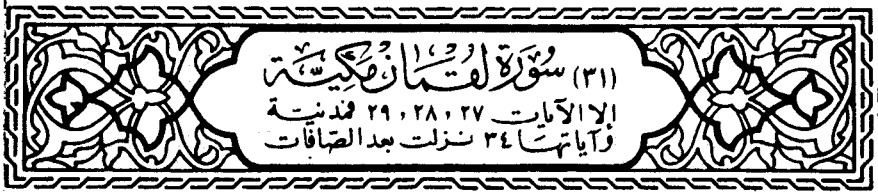 (٣١) سُورَة لقمَان مَكيّة
إلا الآيات ٢٧ ، ٢٨ ، ٢٩ فمدنية
وآياتها ٣٤ نزلت بعد الصافات